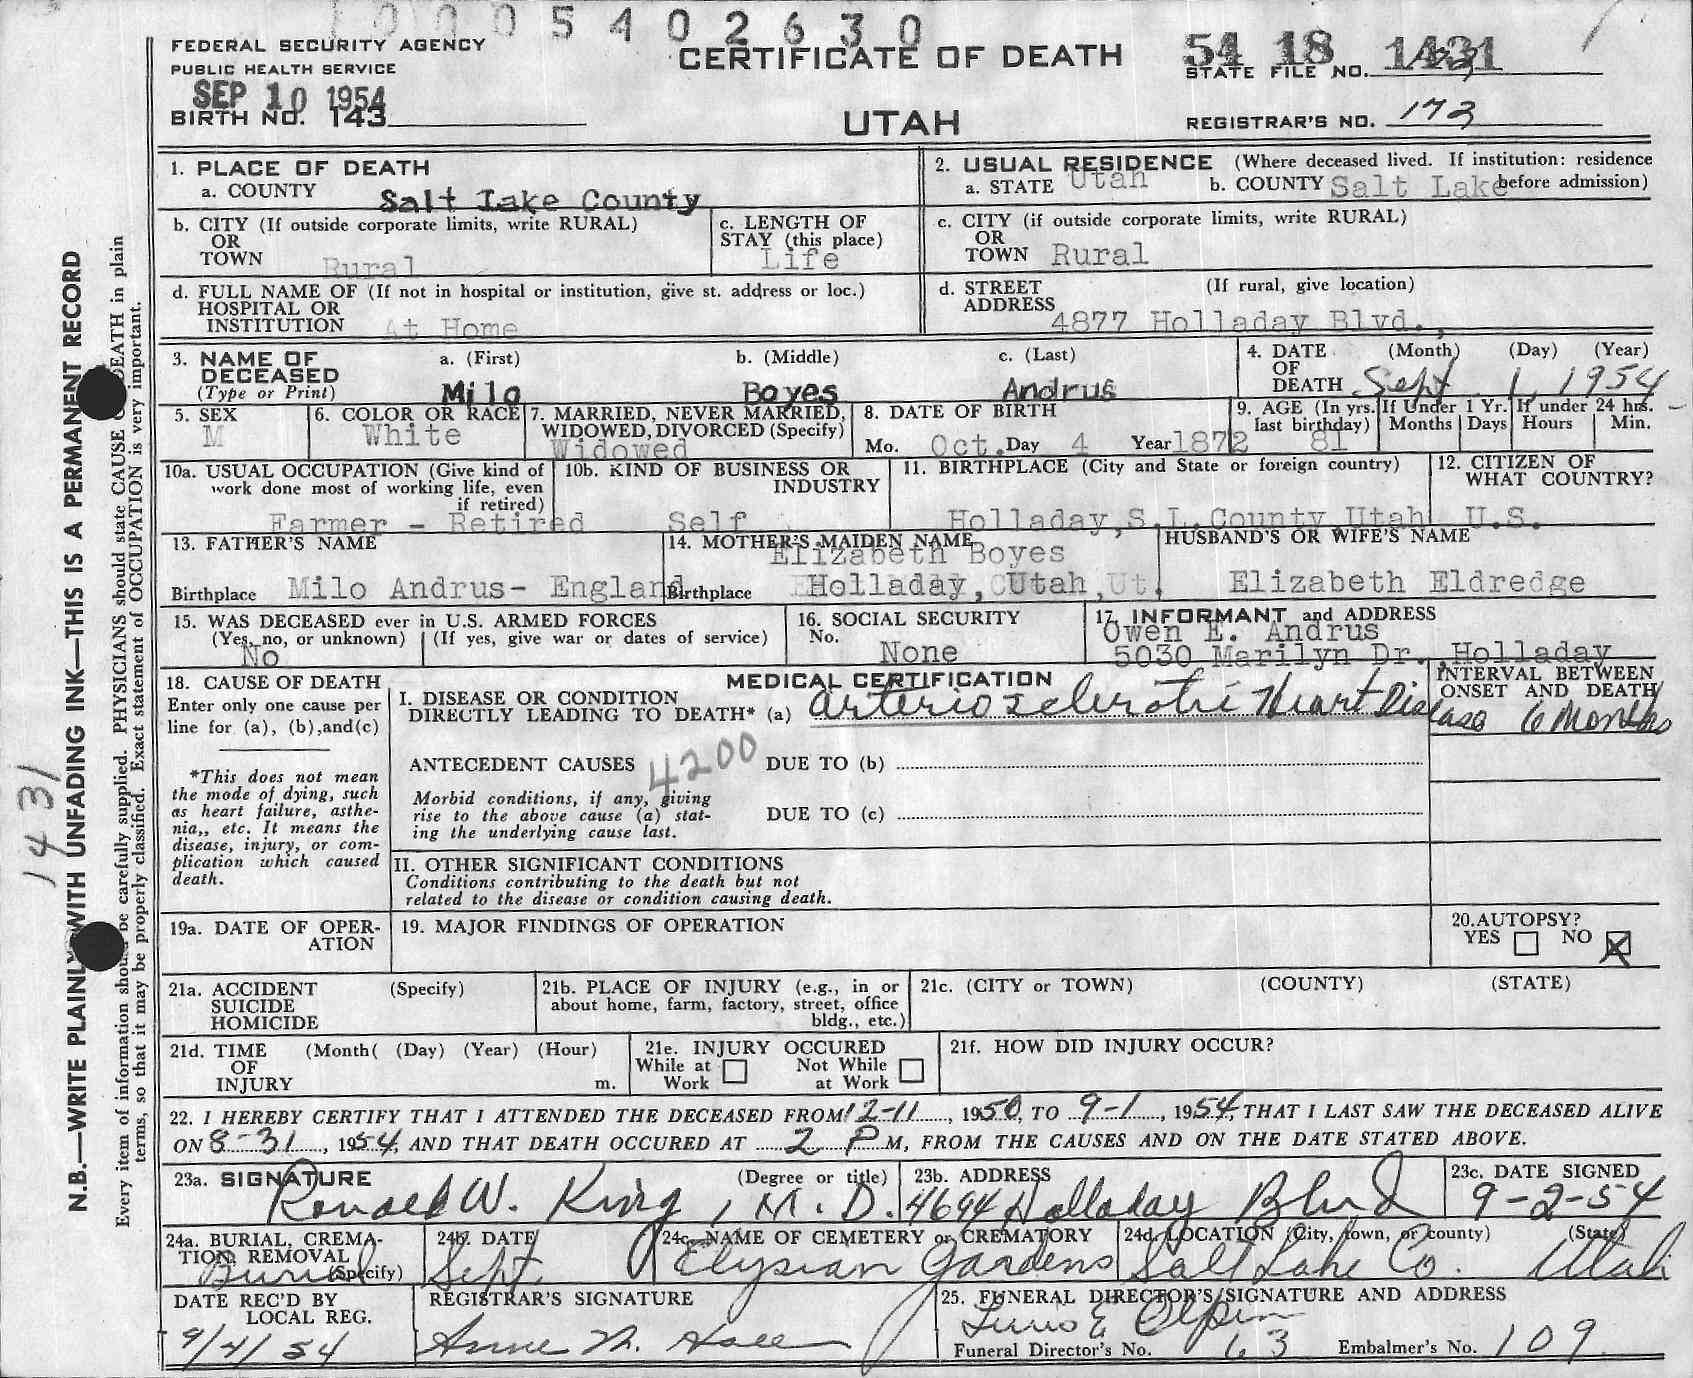 10005402630
FEDERAL SECURITY AGENCY
PUBLIC HEALTH SERVICE
SEP 10 1954
BIRTH NO. 143
CERTIFICATE OF DEATH
UTAH
54 18 1431
STATE FILE NO.
REGISTRAR'S NO. 173
1. PLACE OF DEATH
a. COUNTY Salt Lake County
2. USUAL RESIDENCE (Where deceased lived. If institution: residence before admission)
a. STATE Utah b. COUNTY Salt Lake
b. CITY (If outside corporate limits, write RURAL)
OR
TOWN Rural
c. LENGTH OF
STAY (this place)
Life
c. CITY (if outside corporate limits, write RURAL)
OR
TOWN Rural
d. FULL NAME OF (If not in hospital or institution, give st. address or loc.)
HOSPITAL OR
INSTITUTION At Home
d. STREET (If rural, give location)
ADDRESS
4877 Holladay Blvd.,
3. NAME OF a. (First) b. (Middle) c. (Last)
DECEASED
(Type or Print) Milo Boyes Andrus
4. DATE (Month) (Day) (Year)
OF
DEATH Sept 1, 1954
5. SEX
M
6. COLOR OR RACE
White
7. MARRIED, NEVER MARRIED,
WIDOWED, DIVORCED (Specify)
Widowed
8. DATE OF BIRTH
Mo. Oct. Day 4 Year 1872
9. AGE (In yrs. last birthday) 81
If Under 1 Yr. Months Days
If under 24 hrs. Hours Min.
10a. USUAL OCCUPATION (Give kind of
work done most of working life, even
if retired)
Farmer - Retired
10b. KIND OF BUSINESS OR
INDUSTRY
Self
11. BIRTHPLACE (City and State or foreign country)
Holladay, S.L. County Utah
12. CITIZEN OF
WHAT COUNTRY?
U.S.
13. FATHER'S NAME
Birthplace Milo Andrus- England
14. MOTHER'S MAIDEN NAME
Elizabeth Boyes
Birthplace Holladay, Utah, Ut.
HUSBAND'S OR WIFE'S NAME
Elizabeth Eldredge
15. WAS DECEASED ever in U.S. ARMED FORCES
(Yes, no, or unknown) (If yes, give war or dates of service)
No
16. SOCIAL SECURITY
No.
None
17. INFORMANT and ADDRESS
Owen E. Andrus
5030 Marilyn Dr., Holladay
18. CAUSE OF DEATH
Enter only one cause per
line for (a), (b), and (c)
*This does not mean
the mode of dying, such
as heart failure, asthe-
nia,, etc. It means the
disease, injury, or com-
plication which caused
death.
MEDICAL CERTIFICATION
I. DISEASE OR CONDITION
DIRECTLY LEADING TO DEATH* (a) Arteriosclerotic Heart Disease
INTERVAL BETWEEN
ONSET AND DEATH
6 Months
ANTECEDENT CAUSES 4200 DUE TO (b)
Morbid conditions, if any, giving
rise to the above cause (a) stat-
ing the underlying cause last.
DUE TO (c)
II. OTHER SIGNIFICANT CONDITIONS
Conditions contributing to the death but not
related to the disease or condition causing death.
19a. DATE OF OPER-
ATION
19. MAJOR FINDINGS OF OPERATION
20. AUTOPSY?
YES NO X
21a. ACCIDENT (Specify)
SUICIDE
HOMICIDE
21b. PLACE OF INJURY (e.g., in or
about home, farm, factory, street, office
bldg., etc.)
21c. (CITY or TOWN) (COUNTY) (STATE)
21d. TIME (Month( (Day) (Year) (Hour)
OF
INJURY m.
21e. INJURY OCCURED
While at Work Not While at Work
21f. HOW DID INJURY OCCUR?
22. I HEREBY CERTIFY THAT I ATTENDED THE DECEASED FROM 12-11, 1950, TO 9-1, 1954, THAT I LAST SAW THE DECEASED ALIVE
ON 8-31, 1954, AND THAT DEATH OCCURED AT 2 P M, FROM THE CAUSES AND ON THE DATE STATED ABOVE.
23a. SIGNATURE (Degree or title)
Ronald W. King, M.D.
23b. ADDRESS
4694 Holladay Blvd
23c. DATE SIGNED
9-2-54
24a. BURIAL, CREMA-
TION, REMOVAL
(Specify) Burial
24b. DATE
Sept.
24c. NAME OF CEMETERY or CREMATORY
Elysian Gardens
24d. LOCATION (City, town, or county) (State)
Salt Lake Co. Utah
DATE REC'D BY
LOCAL REG.
9/4/54
REGISTRAR'S SIGNATURE
Anne M.
25. FUNERAL DIRECTOR'S SIGNATURE AND ADDRESS
E Olpin
Funeral Director's No. 63 Embalmer's No. 109
N.B.—WRITE PLAINLY WITH UNFADING INK—THIS IS A PERMANENT RECORD
Every item of information should be carefully supplied. PHYSICIANS should state CAUSE OF DEATH in plain
terms, so that it may be properly classified. Exact statement of OCCUPATION is very important.
1431